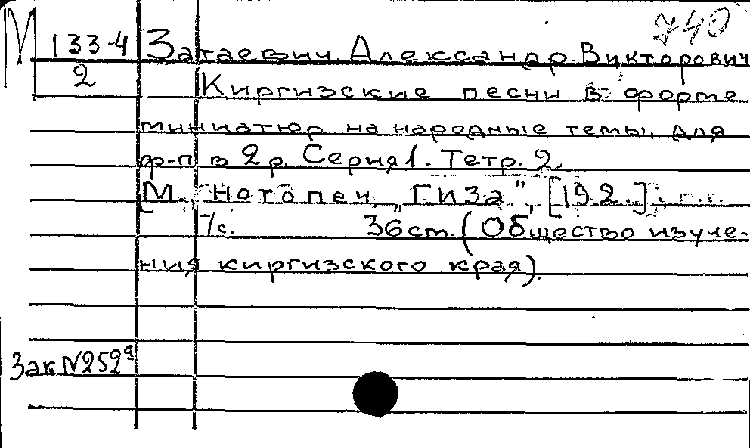 740
М 133-4 Затаевич Александр Викторович
2 Киргизские песни в форме
миниатюр на народные темы, для
ф-п в 2 р. Серия 1. Тетр. 2.
[М., Нотопеч. „Гиза", [192.].
7с. 36 ст. (Общество изуче-
ния киргизского края).
Зак N252ª